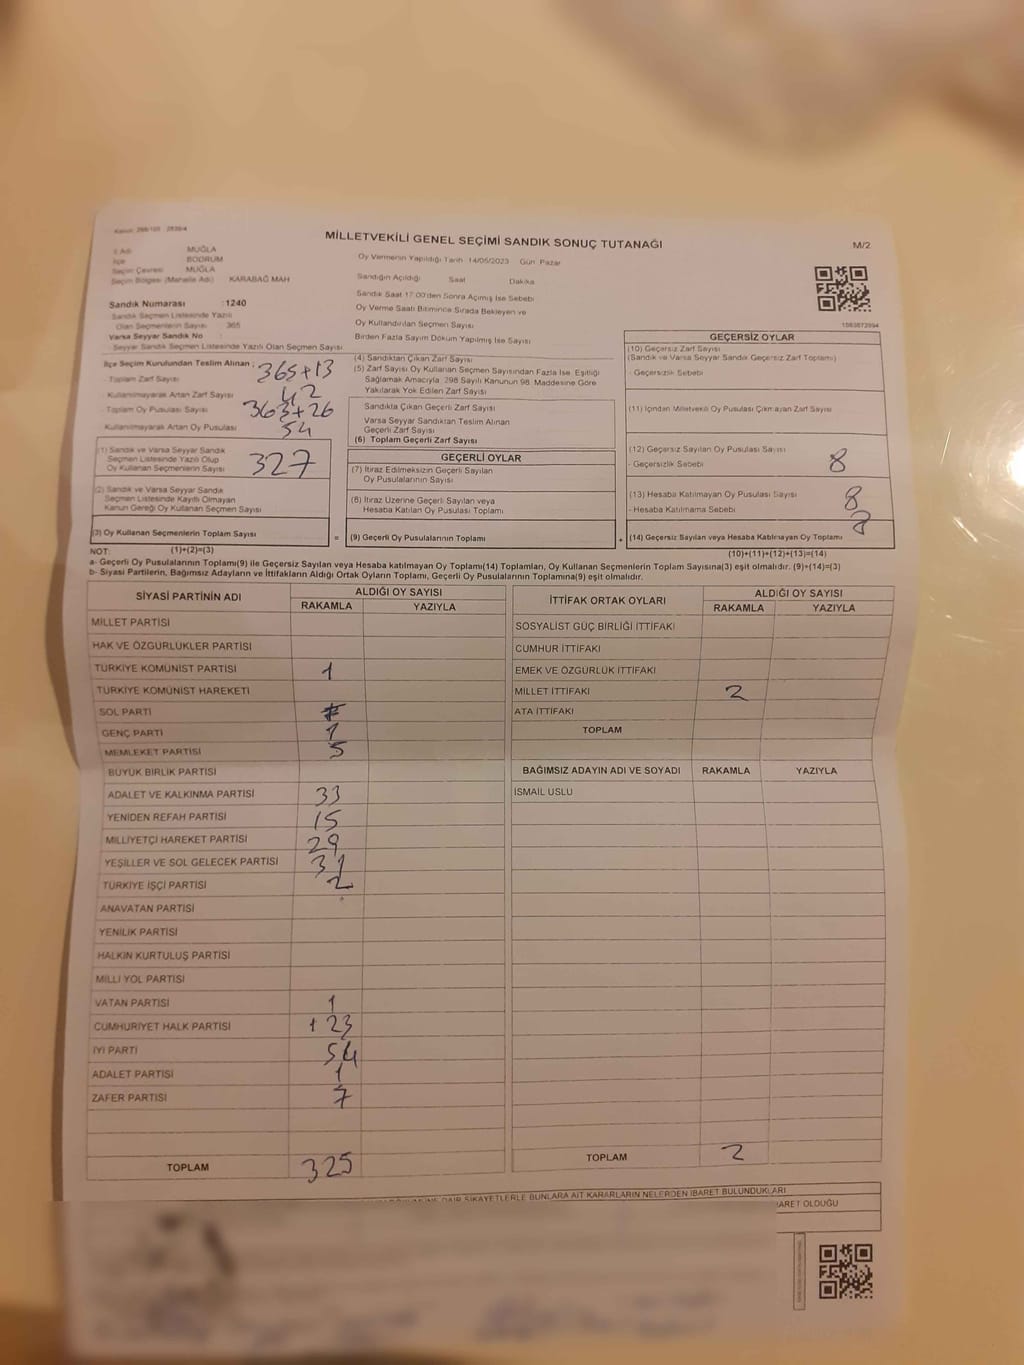 Kanun: 298/105 - 2839/4
MİLLETVEKİLİ GENEL SEÇİMİ SANDIK SONUÇ TUTANAĞI
M/2
İl Adı MUĞLA
İlçe BODRUM
Seçim Çevresi MUĞLA
Seçim Bölgesi (Mahalle Adı) KARABAĞ MAH
Sandık Numarası :1240
Sandık Seçmen Listesinde Yazılı
Olan Seçmenlerin Sayısı 365
Varsa Seyyar Sandık No
Seyyar Sandık Seçmen Listesinde Yazılı Olan Seçmen Sayısı
Oy Vermenin Yapıldığı Tarih 14/05/2023 Gün Pazar
Sandığın Açıldığı Saat Dakika
Sandık Saat 17:00'den Sonra Açımış İse Sebebi
Oy Verme Saati Bitimince Sırada Bekleyen ve
Oy Kullandırılan Seçmen Sayısı
Birden Fazla Sayım Döküm Yapılmış İse Sayısı
1583872994
İlçe Seçim Kurulundan Teslim Alınan :
- Toplam Zarf Sayısı 365+13
- Kullanılmayarak Artan Zarf Sayısı 42
- Toplam Oy Pusulası Sayısı 363+26
Kullanılmayarak Artan Oy Pusulası 54
(1) Sandık ve Varsa Seyyar Sandık
Seçmen Listesinde Yazılı Olup
Oy Kullanan Seçmenlerin Sayısı 327
(2) Sandık ve Varsa Seyyar Sandık
Seçmen Listesinde Kayıtlı Olmayan
Kanun Gereği Oy Kullanan Seçmen Sayısı
(3) Oy Kullanan Seçmenlerin Toplam Sayısı
(4) Sandıktan Çıkan Zarf Sayısı
(5) Zarf Sayısı Oy Kullanan Seçmen Sayısından Fazla İse Eşitliği
Sağlamak Amacıyla 298 Sayılı Kanunun 98. Maddesine Göre
Yakılarak Yok Edilen Zarf Sayısı
Sandıkla Çıkan Geçerli Zarf Sayısı
Varsa Seyyar Sandıktan Teslim Alınan
Geçerli Zarf Sayısı
(6) Toplam Geçerli Zarf Sayısı
GEÇERLİ OYLAR
(7) İtiraz Edilmeksizin Geçerli Sayılan
Oy Pusulalarının Sayısı
(8) İtiraz Üzerine Geçerli Sayılan veya
Hesaba Katılan Oy Pusulası Toplamı
= (9) Geçerli Oy Pusulalarının Toplamı +
GEÇERSİZ OYLAR
(10) Geçersiz Zarf Sayısı
(Sandık ve Varsa Seyyar Sandık Geçersiz Zarf Toplamı)
- Geçersizlik Sebebi
(11) İçinden Milletvekili Oy Pusulası Çıkmayan Zarf Sayısı
(12) Geçersiz Sayılan Oy Pusulası Sayısı
- Geçersizlik Sebebi 8
(13) Hesaba Katılmayan Oy Pusulası Sayısı 8
- Hesaba Katılmama Sebebi
(14) Geçersiz Sayılan veya Hesaba Katılmayan Oy Toplamı
NOT: (1)+(2)=(3)
(10)+(11)+(12)+(13)=(14)
a- Geçerli Oy Pusulalarının Toplamı(9) ile Geçersiz Sayılan veya Hesaba katılmayan Oy Toplamı(14) Toplamları, Oy Kullanan Seçmenlerin Toplam Sayısına(3) eşit olmalıdır. (9)+(14)=(3)
b- Siyasi Partilerin, Bağımsız Adayların ve İttifakların Aldığı Ortak Oyların Toplamı, Geçerli Oy Pusulalarının Toplamına(9) eşit olmalıdır.
SİYASİ PARTİNİN ADI ALDIĞI OY SAYISI
RAKAMLA YAZIYLA
MİLLET PARTİSİ
HAK VE ÖZGÜRLÜKLER PARTİSİ
TÜRKİYE KOMÜNİST PARTİSİ 1
TÜRKİYE KOMÜNİST HAREKETİ
SOL PARTİ
GENÇ PARTİ 1
MEMLEKET PARTİSİ 5
BÜYÜK BİRLİK PARTİSİ
ADALET VE KALKINMA PARTİSİ 33
YENİDEN REFAH PARTİSİ 15
MİLLİYETÇİ HAREKET PARTİSİ 29
YEŞİLLER VE SOL GELECEK PARTİSİ 31
TÜRKİYE İŞÇİ PARTİSİ 2
ANAVATAN PARTİSİ
YENİLİK PARTİSİ
HALKIN KURTULUŞ PARTİSİ
MİLLİ YOL PARTİSİ
VATAN PARTİSİ 1
CUMHURİYET HALK PARTİSİ 123
İYİ PARTİ 54
ADALET PARTİSİ 1
ZAFER PARTİSİ 7
TOPLAM 325
İTTİFAK ORTAK OYLARI ALDIĞI OY SAYISI
RAKAMLA YAZIYLA
SOSYALİST GÜÇ BİRLİĞİ İTTİFAKI
CUMHUR İTTİFAKI
EMEK VE ÖZGÜRLÜK İTTİFAKI
MİLLET İTTİFAKI 2
ATA İTTİFAKI
TOPLAM
BAĞIMSIZ ADAYIN ADI VE SOYADI RAKAMLA YAZIYLA
İSMAİL USLU
TOPLAM 2
DAİR ŞİKAYETLERLE BUNLARA AİT KARARLARIN NELERDEN İBARET BULUNDUKLARI
OLDUĞU